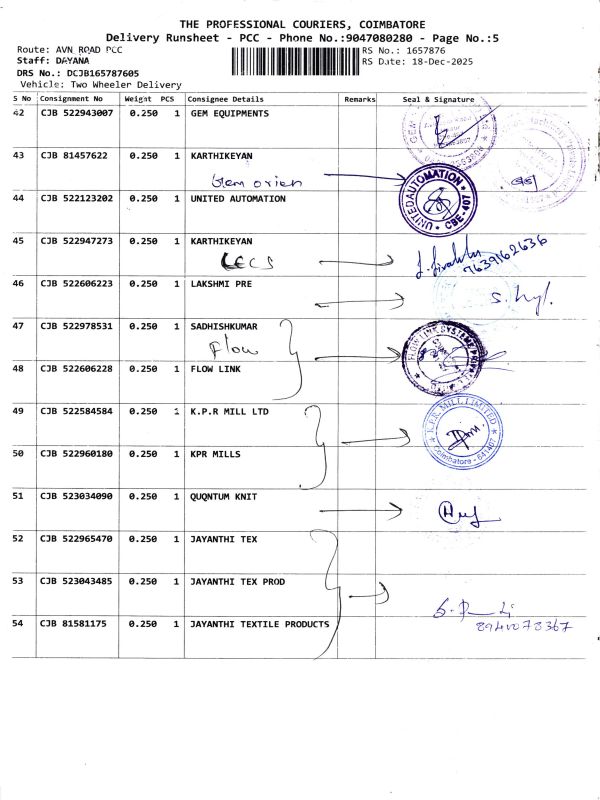 THE PROFESSIONAL COURIERS, COIMBATORE
Delivery Runsheet - PCC - Phone No.:9047080280 - Page No.:5
Route: AVN ROAD PCC
RS No.: 1657876
Staff: DAYANA
RS Date: 18-Dec-2025
DRS No.: DCJB165787605
Vehicle: Two Wheeler Delivery
S No Consignment No Weight PCS Consignee Details Remarks Seal & Signature
42 CJB 522943007 0.250 1 GEM EQUIPMENTS
43 CJB 81457622 0.250 1 KARTHIKEYAN
44 CJB 522123202 0.250 1 UNITED AUTOMATION
UNITED AUTOMATION
CBE-407
45 CJB 522947273 0.250 1 KARTHIKEYAN
LECS
7639162636
46 CJB 522606223 0.250 1 LAKSHMI PRE
47 CJB 522978531 0.250 1 SADHISHKUMAR
Flow
FLOW LINK SYSTEMS
48 CJB 522606228 0.250 1 FLOW LINK
49 CJB 522584584 0.250 1 K.P.R MILL LTD
K.P.R. MILL LIMITED
Coimbatore - 641407
50 CJB 522960180 0.250 1 KPR MILLS
51 CJB 523034090 0.250 1 QUQNTUM KNIT
52 CJB 522965470 0.250 1 JAYANTHI TEX
53 CJB 523043485 0.250 1 JAYANTHI TEX PROD
54 CJB 81581175 0.250 1 JAYANTHI TEXTILE PRODUCTS
8940073367